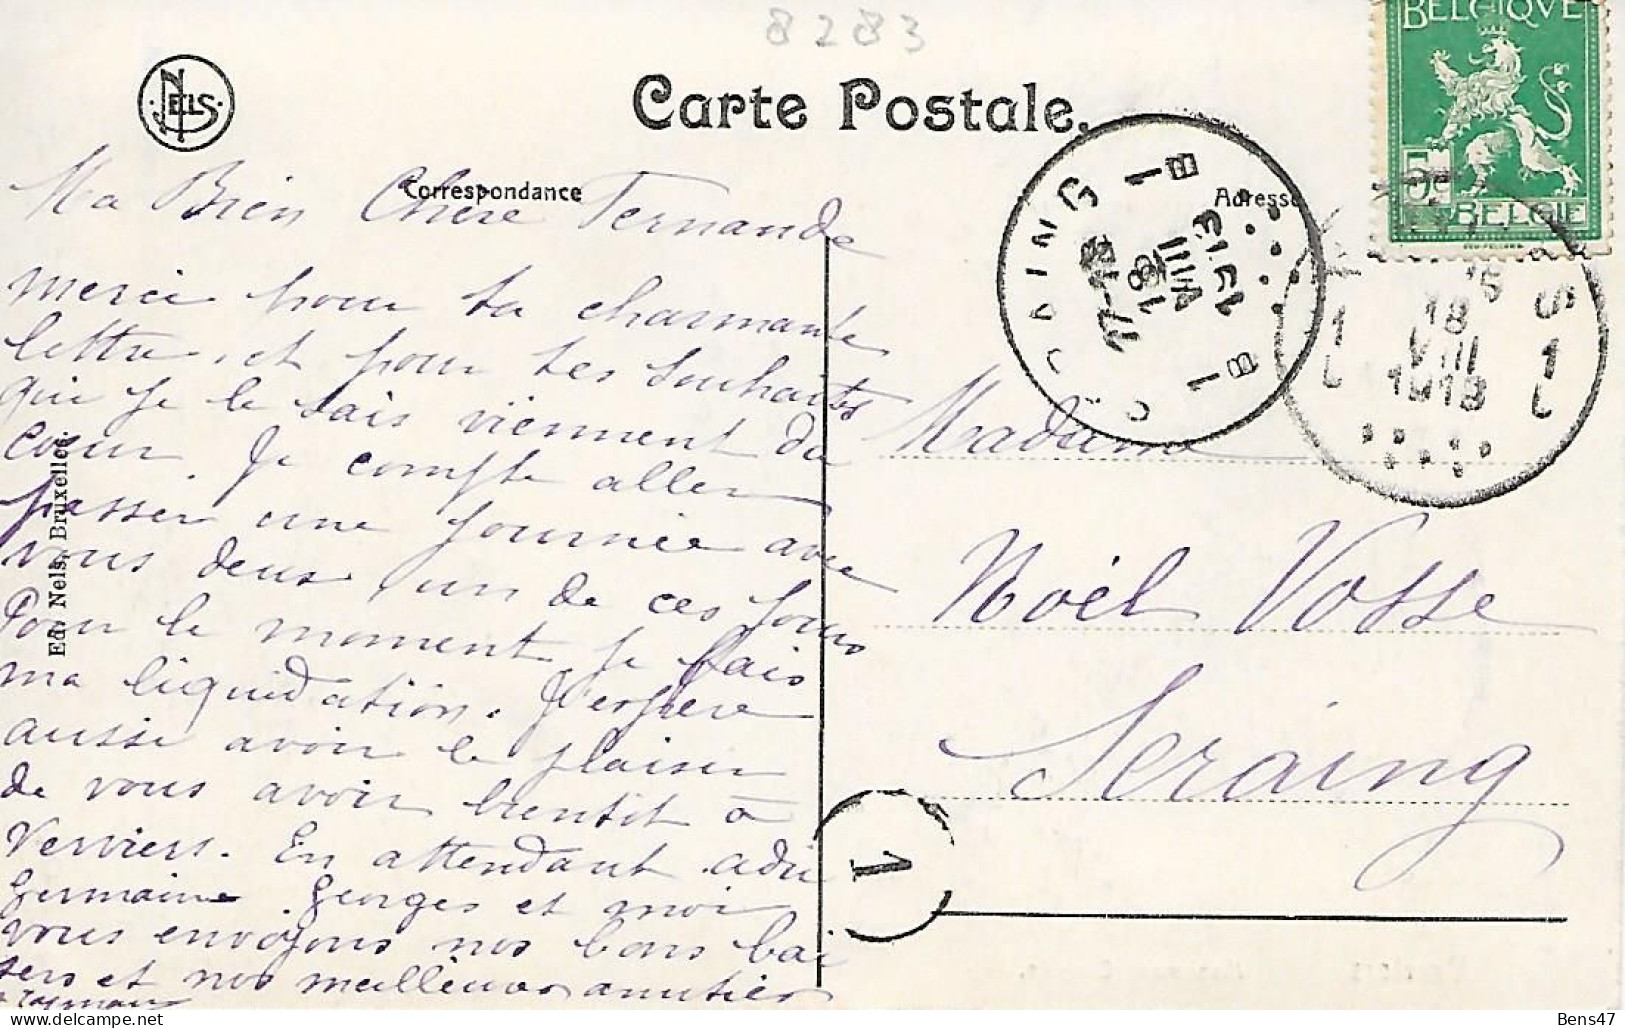 8283
NELS
Carte Postale.
Correspondance
Adresse
BELGIQUE
5c
BELGIE
1B
17-18
18
VIII
1913
1B
18
VIII
1913
Ed. Nels, Bruxelles
Ma Bien Chère Fernande
merci pour ta charmante
lettre, et pour tes souhaits
qui je le sais viennent du
cœur. Je compte aller
passer une journée avec
vous deux un de ces jours
Pour le moment je fais
ma liquidation. J'espère
aussi avoir le plaisir
de vous avoir bientôt à
Verviers. En attendant
Germaine Georges et moi
vous envoyons nos bons bai
sers et nos meilleures amitiés
Madame
Noël Vosse
Seraing
1
Bens47